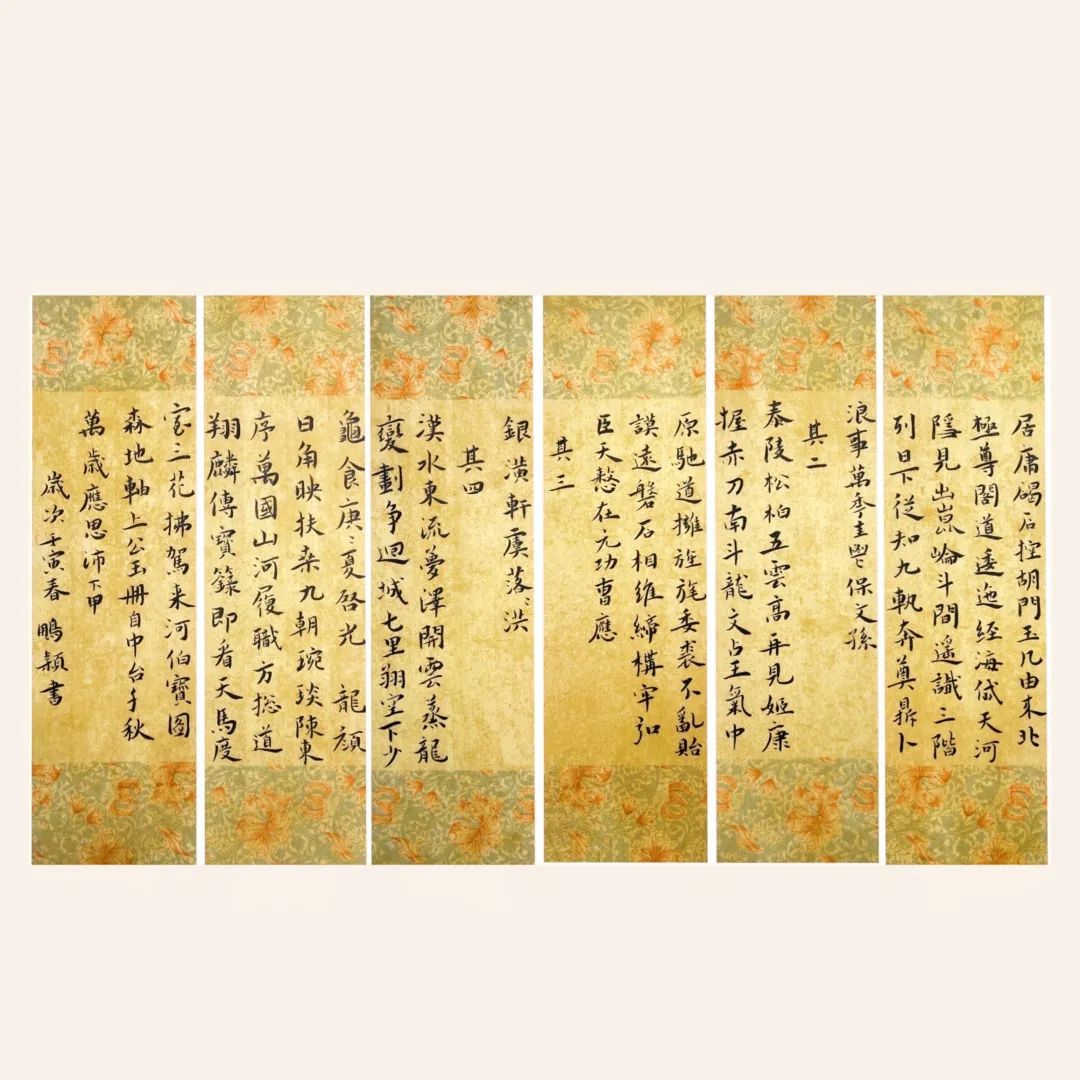 居庸碣石控胡門玉几由来北
極尊閣道逶迤経海岱天河
隱見出崑崘斗間遥識三階
列日下從知九軌奔奠鼎卜
浪事萬季圭鬯保文孫
其二
泰陵松柏五雲高再見姬康
握赤刀南斗龍文占王氣中
原馳道擁旌旄委裘不亂貽
謨遠磐石相維締構牢弘
臣天愁在元功曹應
其三
銀潢軒虞落〻洪
其四
漢水東流夢澤開雲蒸龍
變劃争迴城七里翔空下少
龜食庚〻夏啓光 龍顔
日角映扶桒九朝琬琰陳東
序萬國山河履職方揔道
翔麟傳寶籙即看天馬度
室三花拂駕来河伯寶圖
森地軸上公玉冊自中台千秋
萬歲應思沛下甲
歲次壬寅春 鵬穎書